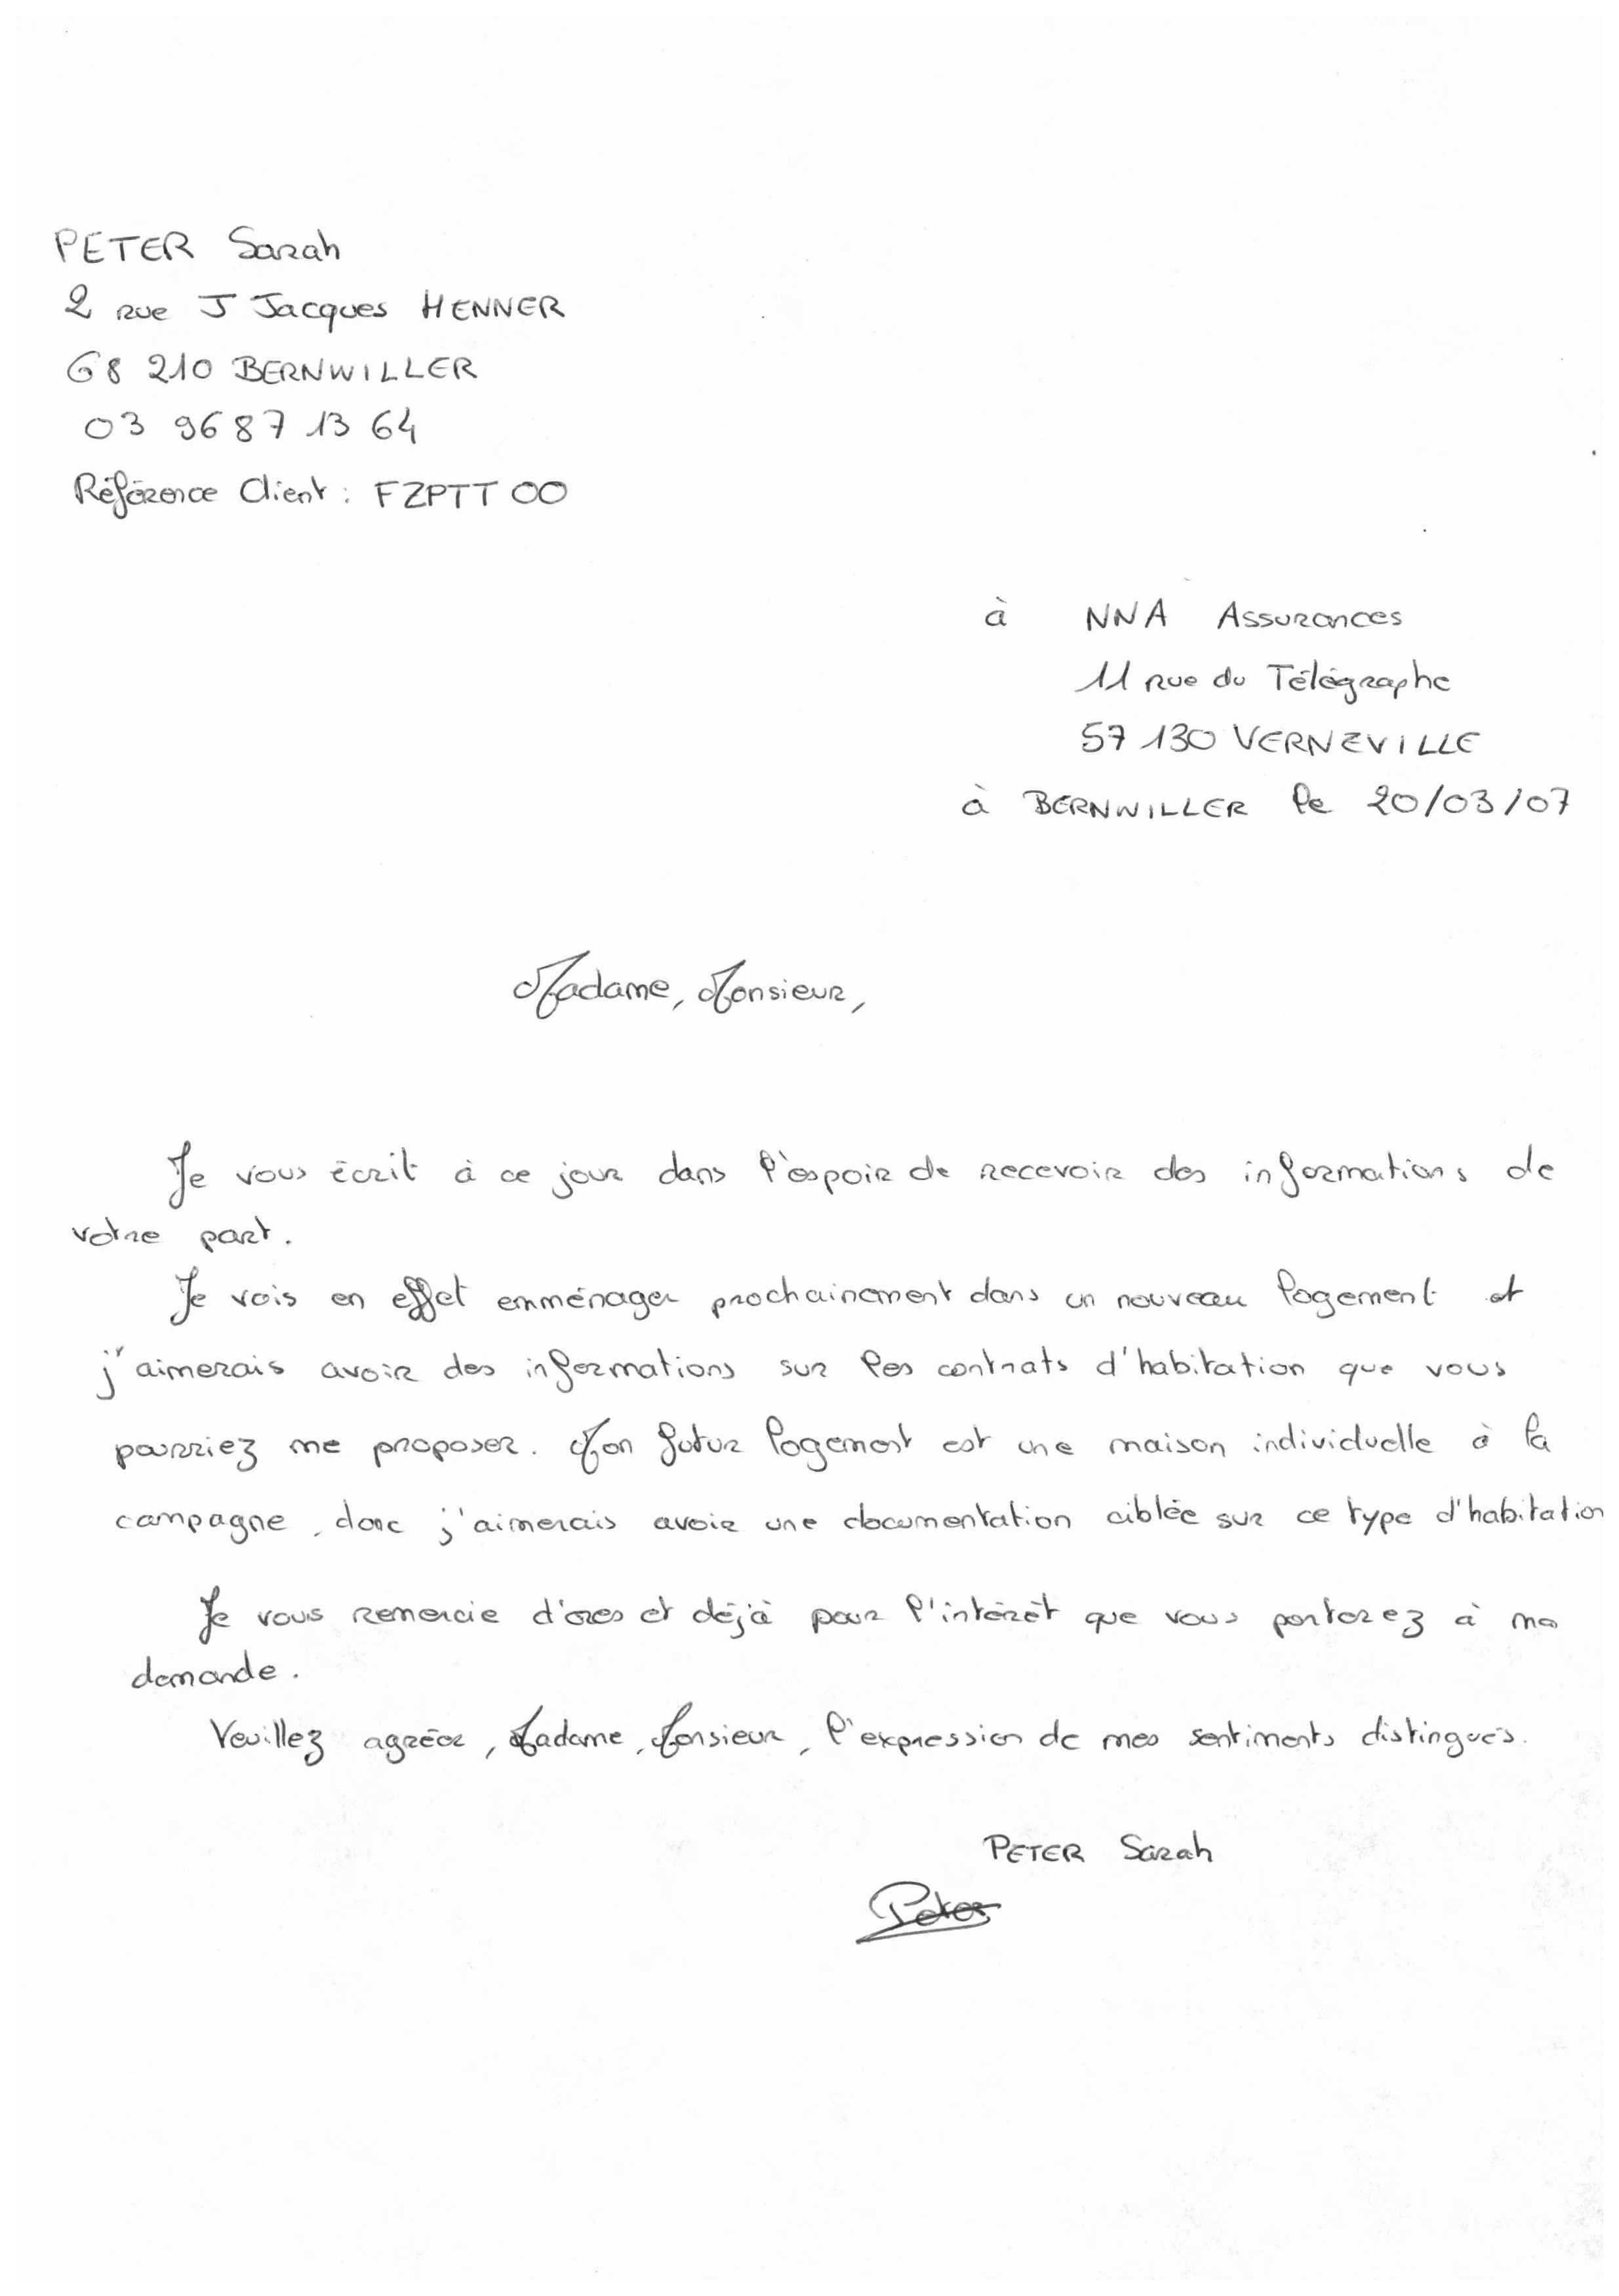 PETER Sarah
2 rue J Jacques HENNER
68 210 BERNWILLER
03 96 87 13 64
Référence Client : FZPTT 00
à NNA Assurances
11 rue du Télégraphe
57 130 VERNEVILLE
à BERNWILLER le 20/03/07
Madame, Monsieur,
Je vous écrit à ce jour dans l'espoir de recevoir des informations de
votre part.
Je vais en effet emménager prochainement dans un nouveau logement et
j'aimerais avoir des informations sur les contrats d'habitation que vous
pourriez me proposer. Mon futur logement est une maison individuelle à la
campagne, donc j'aimerais avoir une documentation ciblée sur ce type d'habitation
Je vous remercie d'ores et déjà pour l'intérêt que vous porterez à ma
demande.
Veuillez agréer, Madame, Monsieur, l'expression de mes sentiments distingués.
PETER Sarah
Peter